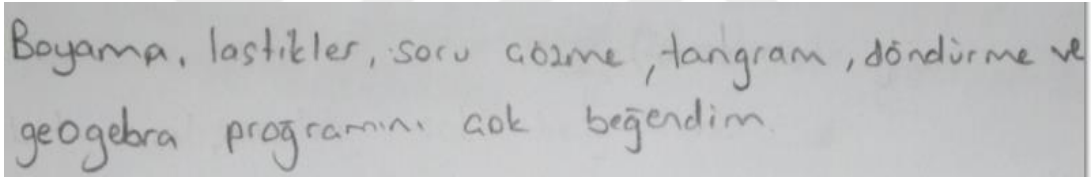 Boyama, lastikler, soru çözme, tangram, döndürme ve
geogebra programını çok beğendim